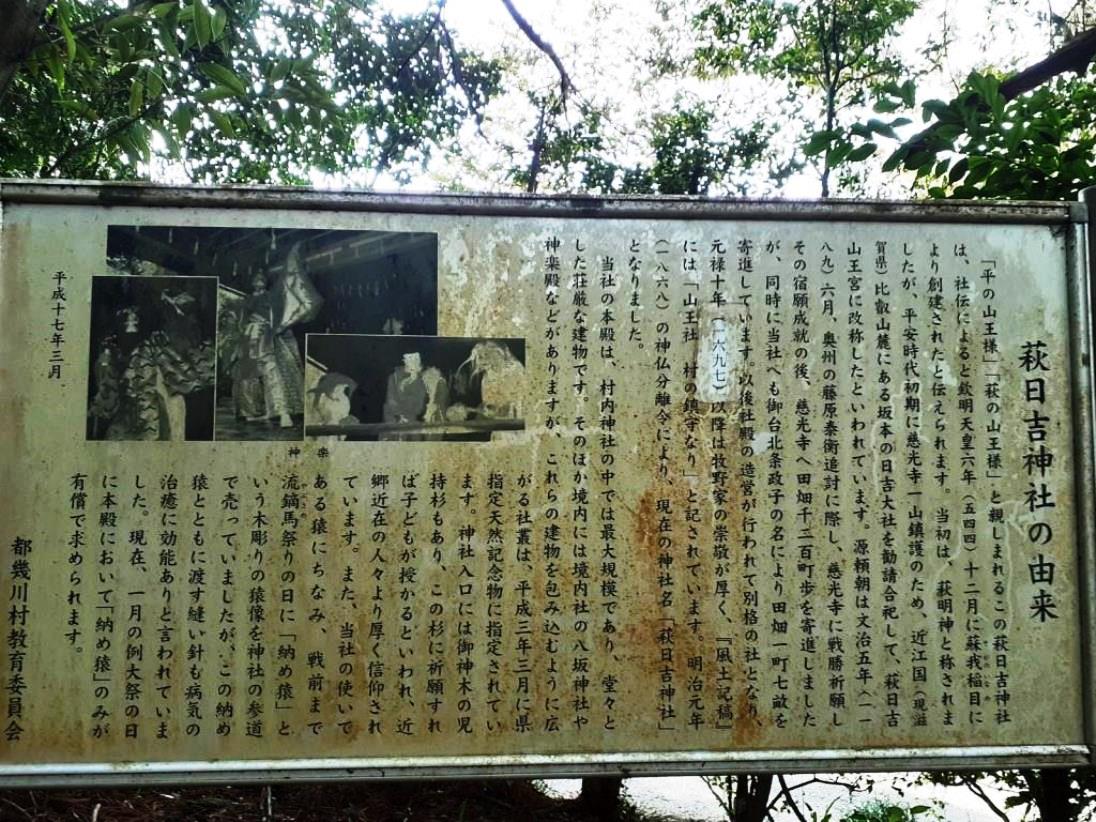 萩日吉神社の由来
「平の山王様」「萩の山王様」と親しまれるこの萩日吉神社
は、社伝によると欽明天皇六年（五四四）十二月に蘇我稲目に
より創建されたと伝えられます。当初は、萩明神と称されま
したが、平安時代初期に慈光寺一山鎮護のため、近江国（現滋
賀県）比叡山麓にある坂本の日吉大社を勧請合祀して、萩日吉
山王宮に改称したといわれています。源頼朝は文治五年（一一
八九）六月、奥州の藤原泰衡追討に際し、慈光寺に戦勝祈願し
その宿願成就の後、慈光寺へ田畑千二百町歩を寄進しました
が、同時に当社へも御台北条政子の名により田畑一町七畝を
寄進しています。以後社殿の造営が行われて別格の社となり、
元禄十年（一六九七）以降は牧野家の崇敬が厚く、『風土記稿』
には「山王社 村の鎮守なり」と記されています。明治元年
（一八六八）の神仏分離令により、現在の神社名「萩日吉神社」
となりました。
当社の本殿は、村内神社の中では最大規模であり、堂々と
した荘厳な建物です。そのほか境内には境内社の八坂神社や
神楽殿などがありますが、これらの建物を包み込むように広
がる社叢は、平成三年三月に県
指定天然記念物に指定されてい
ます。神社入口には御神木の児
持杉もあり、この杉に祈願すれ
ば子どもが授かるといわれ、近
郷近在の人々より厚く信仰され
ています。また、当社の使いで
ある猿にちなみ、戦前まで
流鏑馬祭りの日に「納め猿」と
いう木彫りの猿像を神社の参道
で売っていましたが、この納め
猿とともに渡す縫い針も病気の
治癒に効能ありと言われていま
した。現在、一月の例大祭の日
に本殿において「納め猿」のみが
有償で求められます。
神楽
平成十七年三月
都幾川村教育委員会